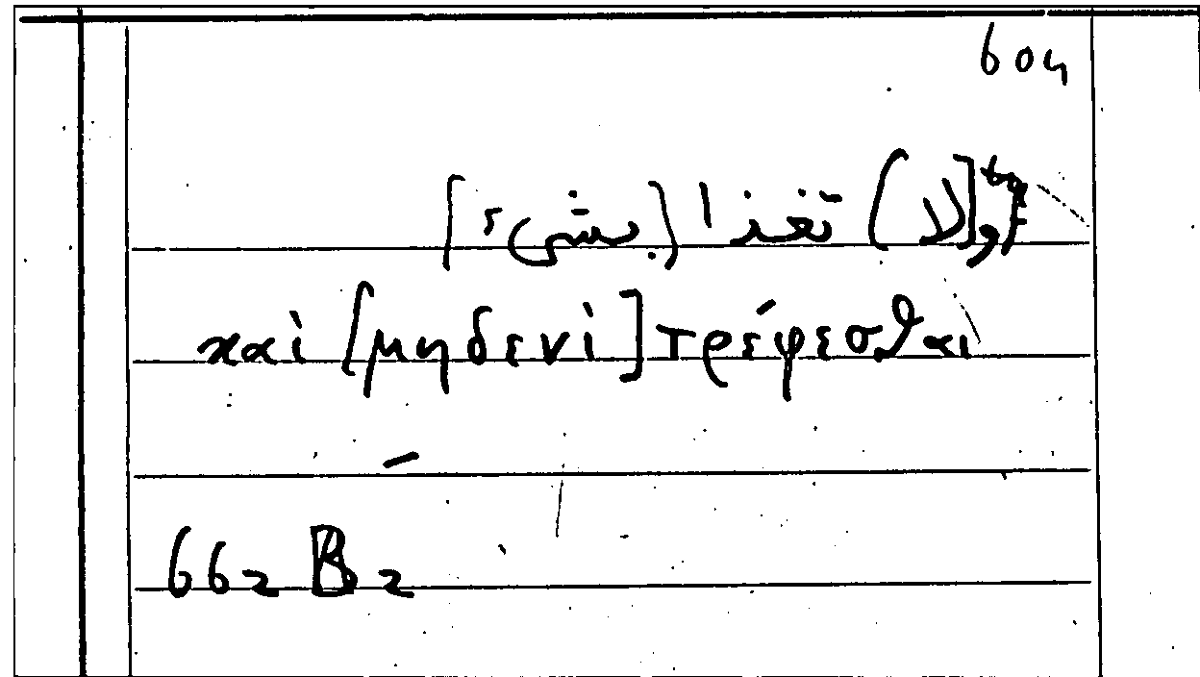 604
و[لا) تغذا (بشىء]
καὶ [μηδενὶ] τρέφεσθαι
662 B 2